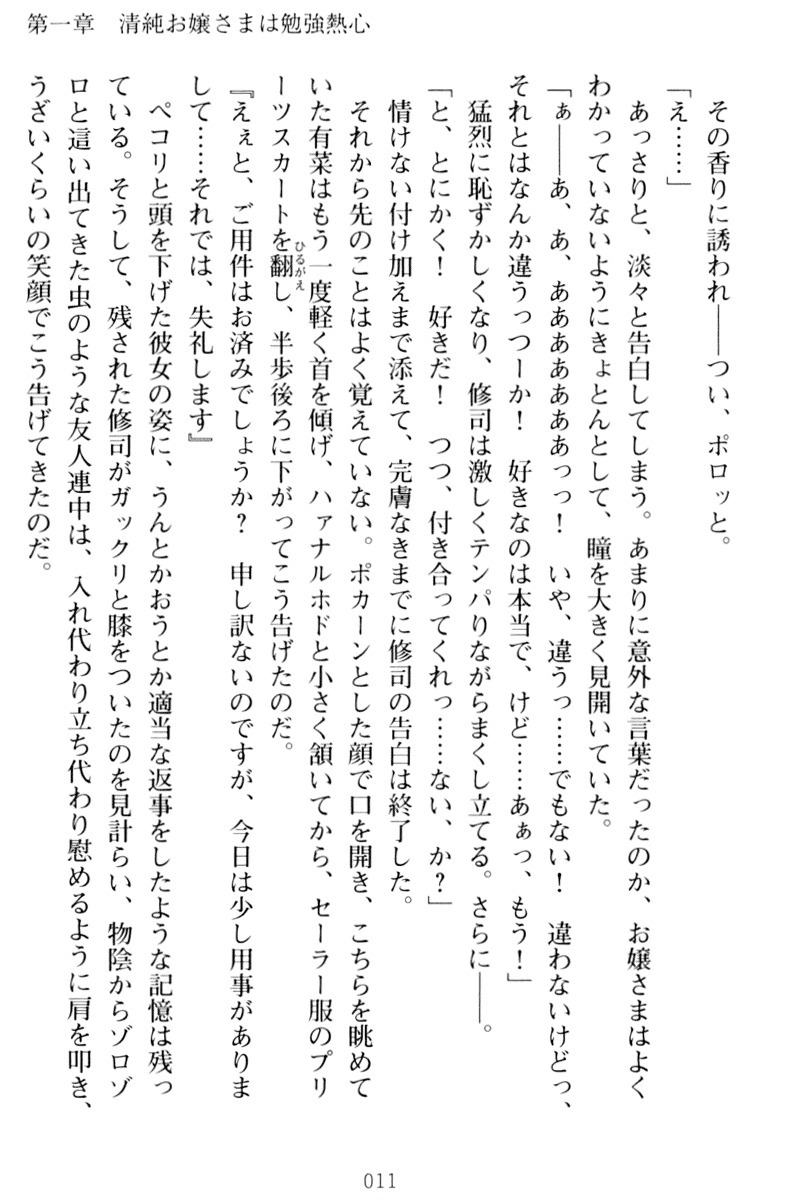 第一章　清純お嬢さまは勉強熱心
　その香りに誘われ――つい、ポロッと。
「え……」
　あっさりと、淡々と告白してしまう。あまりに意外な言葉だったのか、お嬢さまはよく
わかっていないようにきょとんとして、瞳を大きく見開いていた。
「ぁ――あ、あ、ああああああぁっっ！　いや、違うっ……でもない！　違わないけどっ、
それとはなんか違うっつーか！　好きなのは本当で、けど……あぁっ、もう！」
　猛烈に恥ずかしくなり、修司は激しくテンパりながらまくし立てる。さらに――。
「と、とにかく！　好きだ！　つつ、付き合ってくれっ……ない、か？」
　情けない付け加えまで添えて、完膚なきまでに修司の告白は終了した。
　それから先のことはよく覚えていない。ポカーンとした顔で口を開き、こちらを眺めて
いた有菜はもう一度軽く首を傾げ、ハァナルホドと小さく頷いてから、セーラー服のプリ
ーツスカートを翻し、半歩後ろに下がってこう告げたのだ。
ひるがえ
『えぇと、ご用件はお済みでしょうか？　申し訳ないのですが、今日は少し用事がありま
して……それでは、失礼します』
　ペコリと頭を下げた彼女の姿に、うんとかおうとか適当な返事をしたような記憶は残っ
ている。そうして、残された修司がガックリと膝をついたのを見計らい、物陰からゾロゾ
ロと這い出てきた虫のような友人連中は、入れ代わり立ち代わり慰めるように肩を叩き、
うざいくらいの笑顔でこう告げてきたのだ。
011